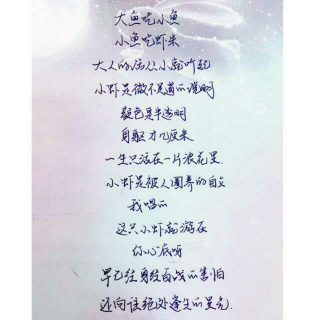 大鱼吃小鱼
小鱼吃虾米
大人的话从小就听起
小虾是微不足道的透明
疑色是半透明
身躯才几厘米
一生只活在一片浪花里
小虾是被人圈养的自由
我唱的
这只小虾就游在
你心底呀
早已经身经百战的害怕
还向往绝处逢生的星光